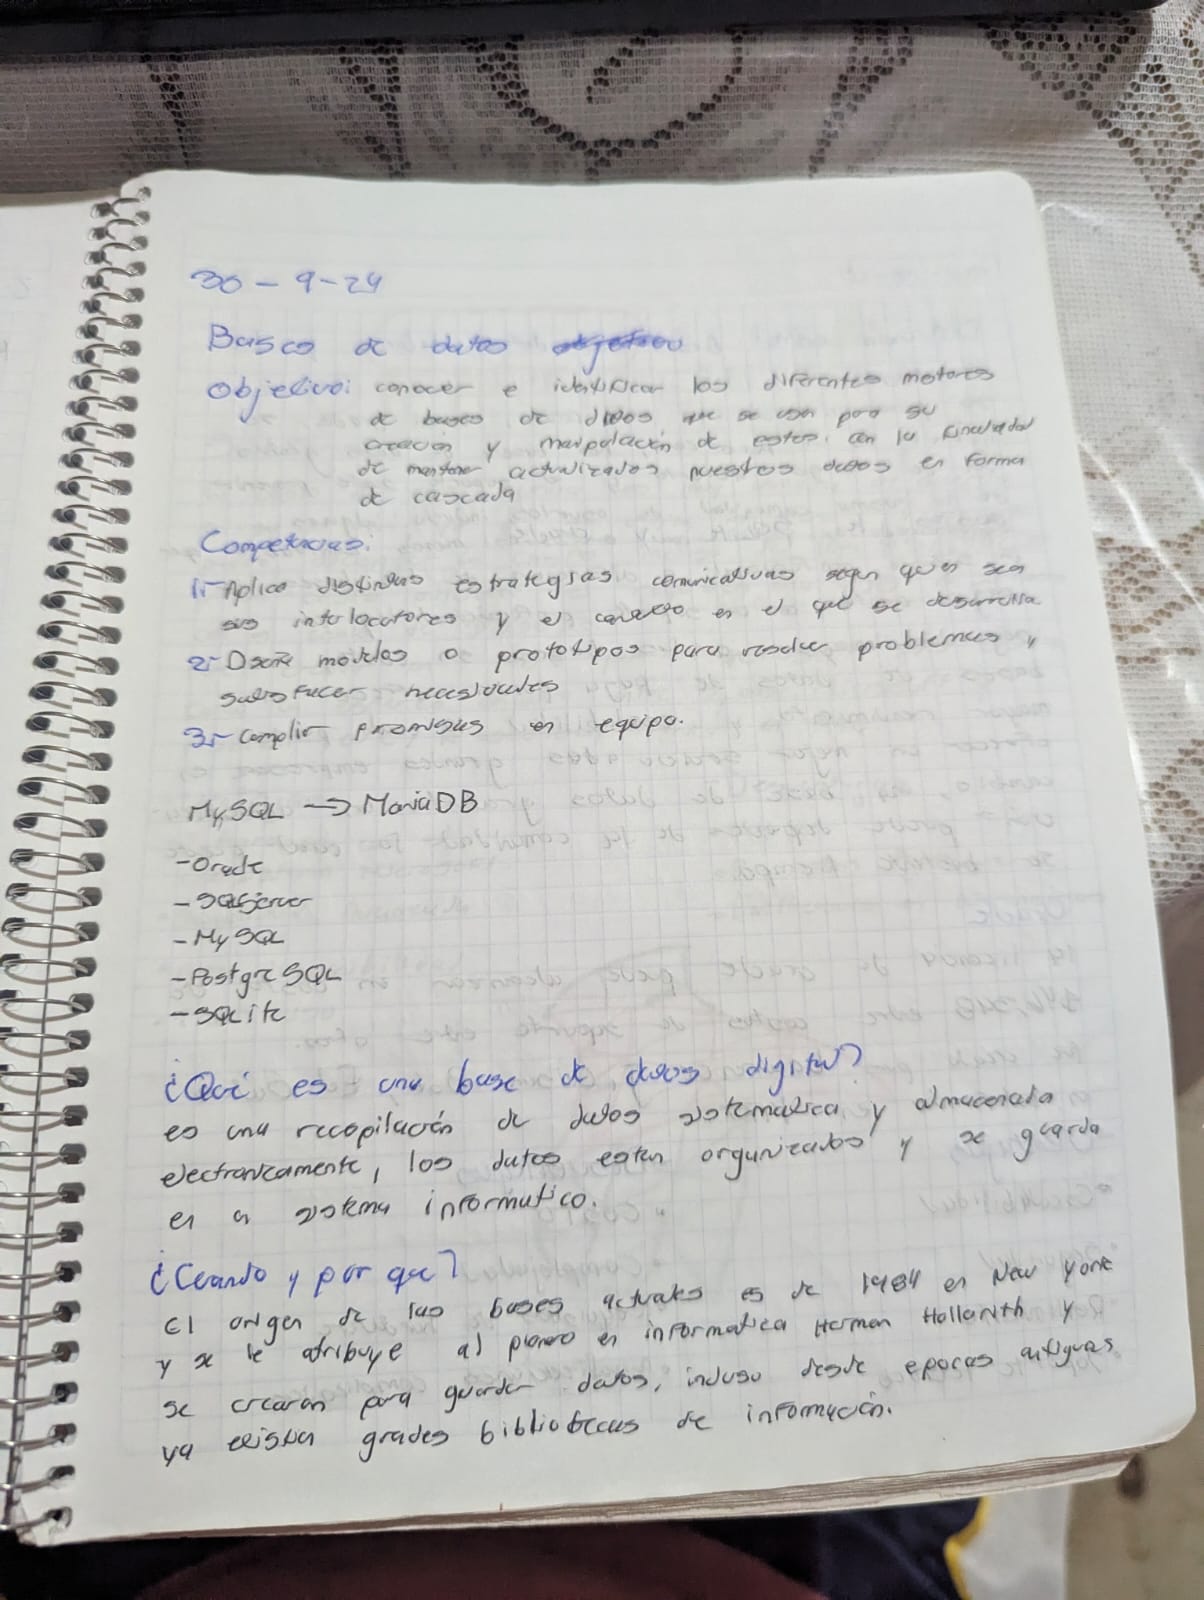 30 - 9 - 24
Basco de datos
Objetivo: conocer e identificar los diferentes motores
de bases de datos que se usan para su
creacion y manipulación de estos, con la finalidad
de mantener actualizados nuestros datos en forma
de cascada
Competencias:
1.- Aplica distintas estrategias comunicativas segun quien sea
sus interlocutores y el contexto en el que se desarrolla
2.- Diseña modelos o prototipos para resolver problemas y
satisfacer necesidades
3.- Complir en equipo.
MySQL → MariaDB
- Oracle
- SQLServer
- MySQL
- PostgreSQL
- SQLite
¿Qué es una base de datos digital?
es una recopilación de datos sistematica y almacenada
electronicamente, los datos estan organizados y se guarda
en un sistema informatico.
¿Cuando y por que?
El origen de las bases actuales es de 1984 en New York
y se le atribuye al pionero en informatica Herman Hollerith y
se crearon para guardar datos, incluso desde epocas antiguas
ya existian grades bibliotecas de información.